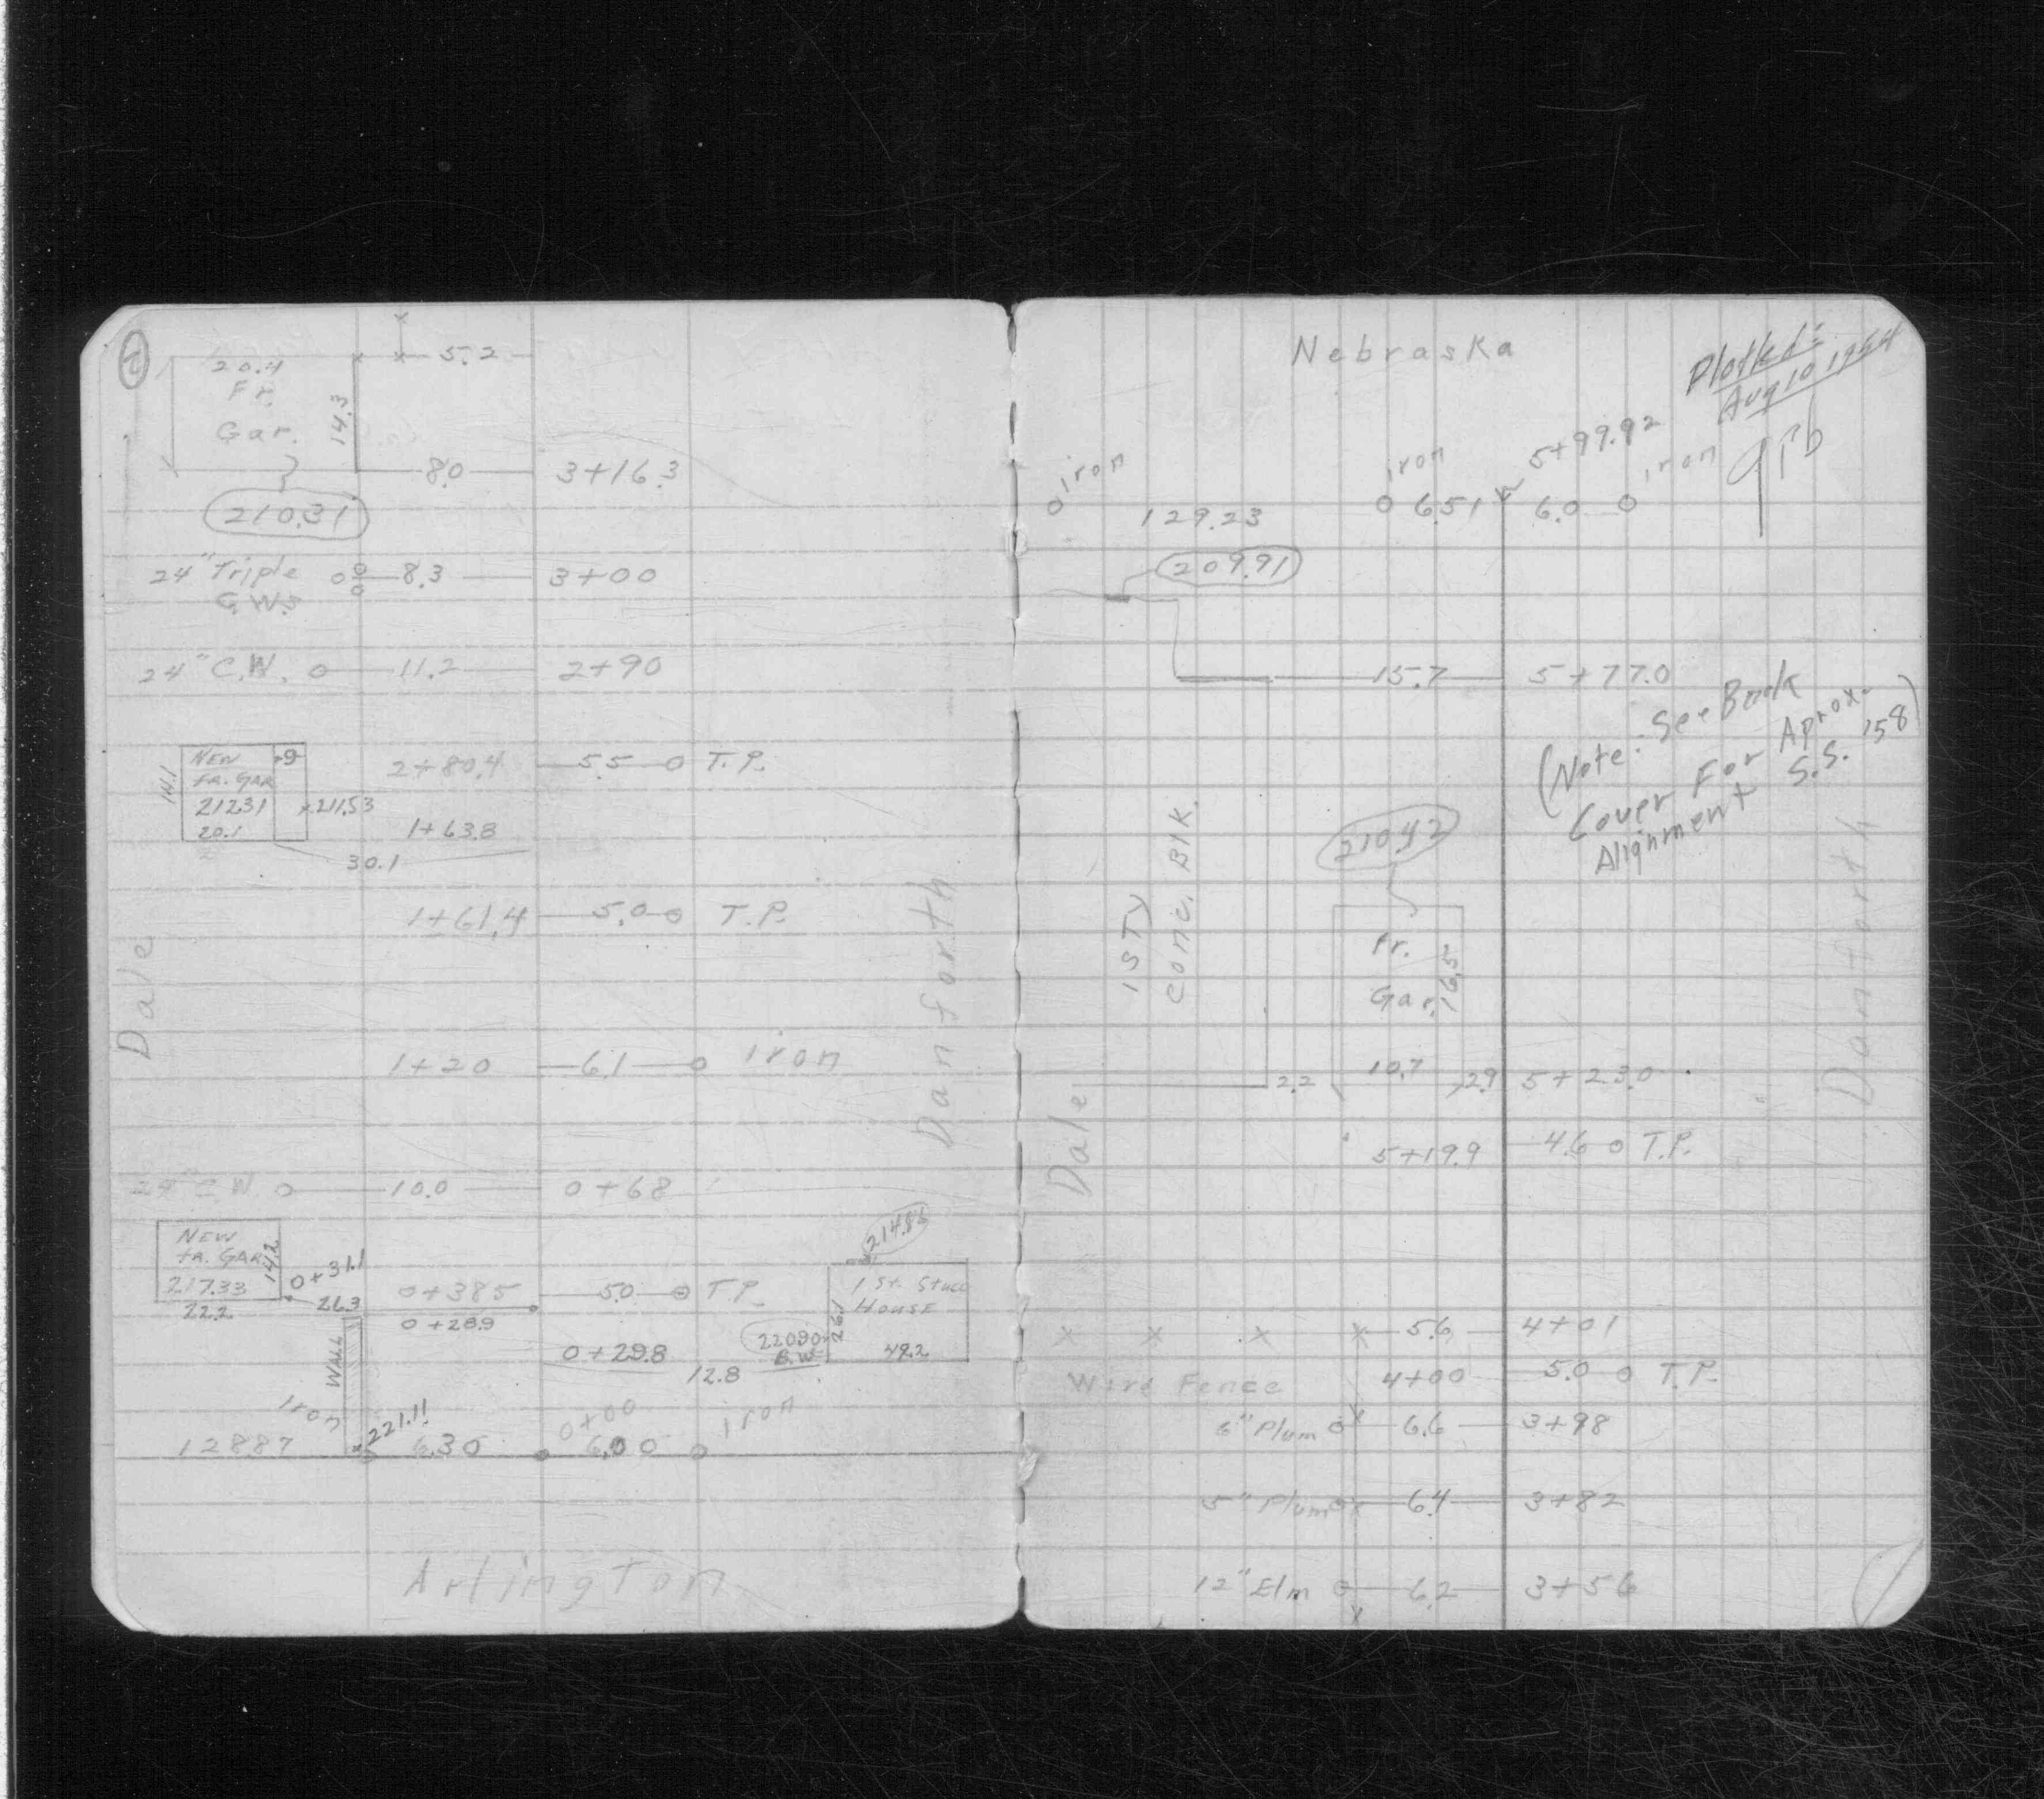 2
5.2
20.4
Fr.
Gar.
14.3
8.0 3+16.3
210.31
24" Triple 8.3 3+00
24" C.W. 11.2 2+90
NEW
FR. GAR
212.31
20.1
14.1
9
x 211.53
2+80.4 5.5 T.P.
1+63.8
30.1
1+61.4 5.0 T.P.
Dale
Danforth
1+20 6.1 iron
24" C.W. 10.0 0+68
NEW
FR. GAR
217.33
22.2
14.2
0+31.1
26.3
0+38.5 5.0 T.P.
0+28.9
214.86
1 St. Stucc
HOUSE
26.1
49.2
0+29.8
220.90
B.W.
12.8
WALL
iron
221.11
0+00
iron
128.87 6.30 6.00
Arlington
Nebraska
Plotted:
Aug 10 1954
iron iron 5+99.92 iron
129.23 6.51 6.0
209.91
15.7 5+77.0
(Note: See Back
Cover For Aprox.
Alignment S.S. '58)
1 STY
Conc. Blk.
210.42
Fr.
Gar.
16.5
Danforth
Dale
2.2 10.7 2.9 5+23.0
5+19.9 4.6 T.P.
x x x x 5.6 4+01
Wire Fence 4+00 5.0 T.P.
6" Plum 6.6 3+98
5" Plum 6.4 3+82
12" Elm 6.2 3+56